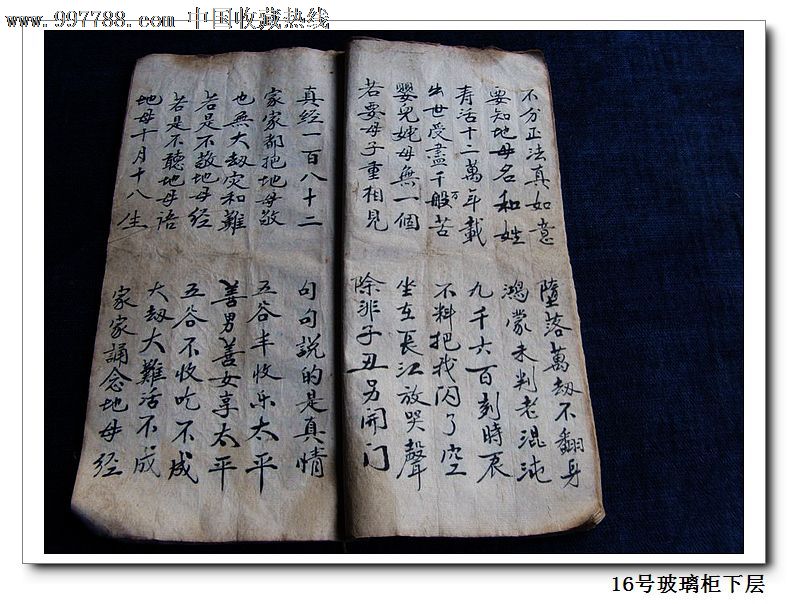 www.997788.com 中国收藏热线
不分正法真如意 墮落萬劫不翻身
要知地母名和姓 鴻蒙未判老混沌
寿活十二萬年載 九千六百刻時辰
出世受盡千万般苦 不料把我閃了空
嬰兒姹母無一個 坐在長江放哭聲
若要母子重相見 除非子丑另開门
真经一百八十二 句句說的是真情
家家都把地母敬 五谷丰收乐太平
也無大劫灾和難 善男善女享太平
若是不敬地母经 五谷不收吃不成
若是不聽地母語 大劫大難活不成
地母十月十八生 家家誦念地母经
16号玻璃柜下层